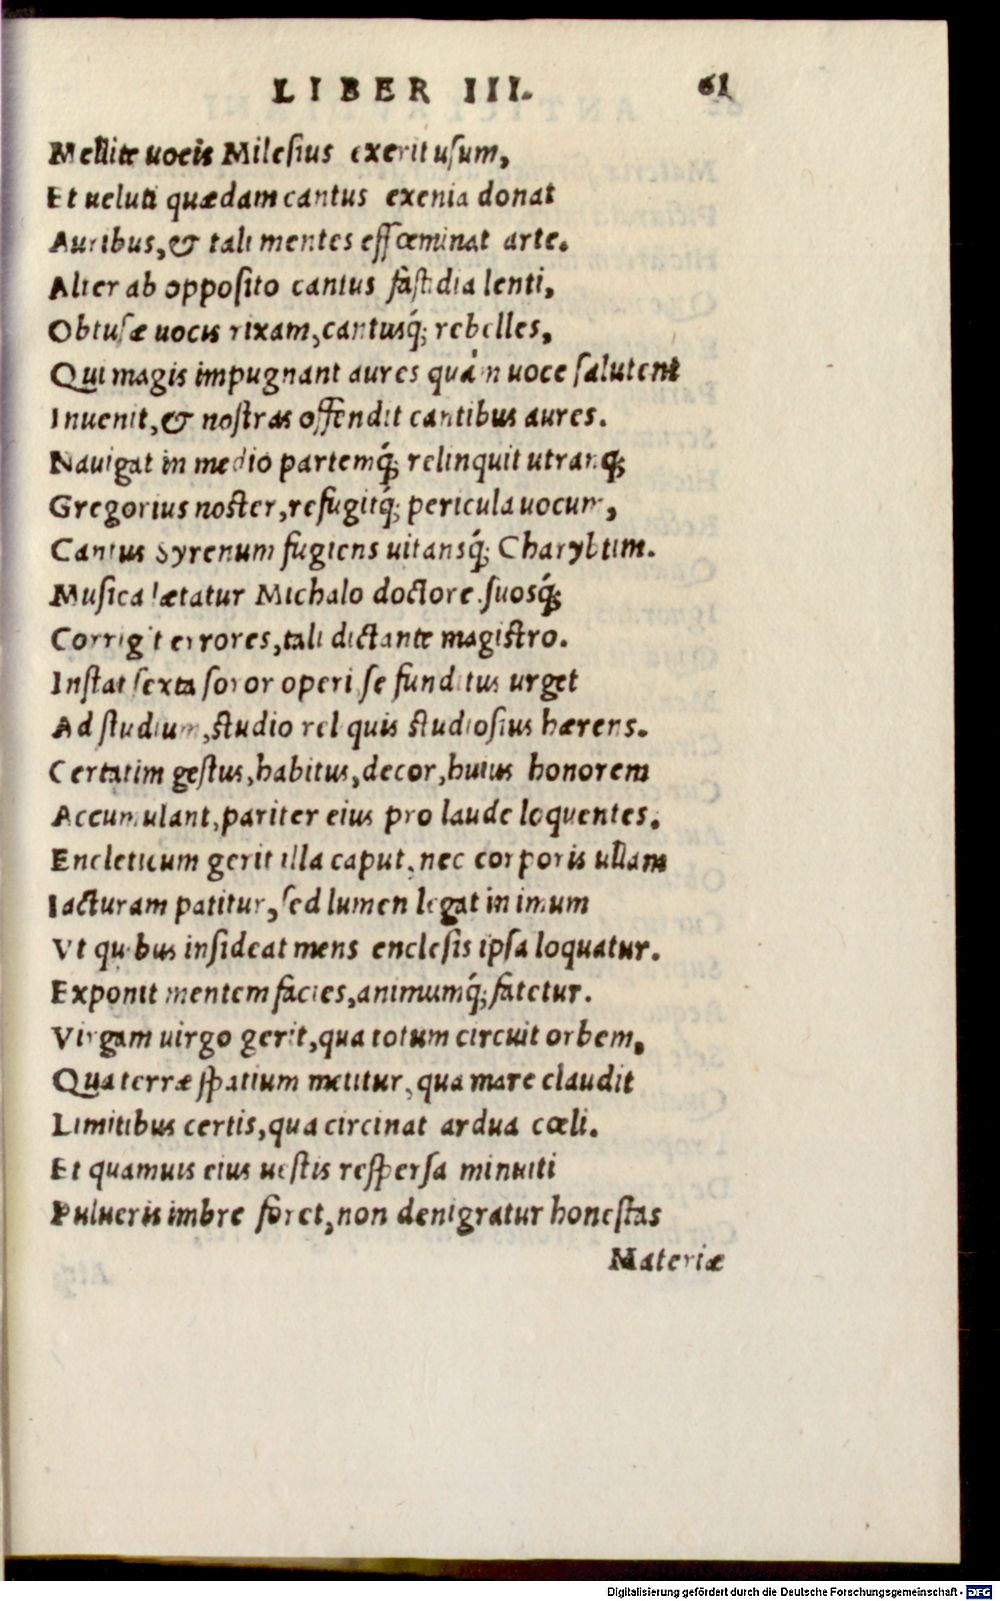 LIBER III. 61
Mellite uocis Milesius exerit usum,
Et ueluti quædam cantus exenia donat
Auribus, & tali mentes effœminat arte.
Alter ab opposito cantus fastidia lenti,
Obtusæ uocis rixam, cantusq́; rebelles,
Qui magis impugnant aures quàm uoce salutent
Inuenit, & nostras offendit cantibus aures.
Nauigat in medio partemq́; relinquit utranq;
Gregorius noster, refugitq́; pericula uocum,
Cantus Syrenum fugiens uitansq́; Charybtim.
Musica lætatur Michalo doctore suosq́;
Corrigit errores, tali dictante magistro.
Instat sexta soror operi se funditus urget
Ad studium, studio reliquis studiosius hærens.
Certatim gestus, habitus, decor, huius honorem
Accumulant, pariter eius pro laude loquentes.
Encleticum gerit illa caput, nec corporis ullam
Iacturam patitur, sed lumen legat in imum
Vt quibus insideat mens enclesis ipsa loquatur.
Exponit mentem facies, animumq́; fatetur.
Virgam uirgo gerit, qua totum circuit orbem,
Qua terræ spatium metitur, qua mare claudit
Limitibus certis, qua circinat ardua cœli.
Et quamuis eius uestis respersa minuiti
Pulueris imbre foret, non denigratur honestas
Materiæ
Digitalisierung gefördert durch die Deutsche Forschungsgemeinschaft - DFG